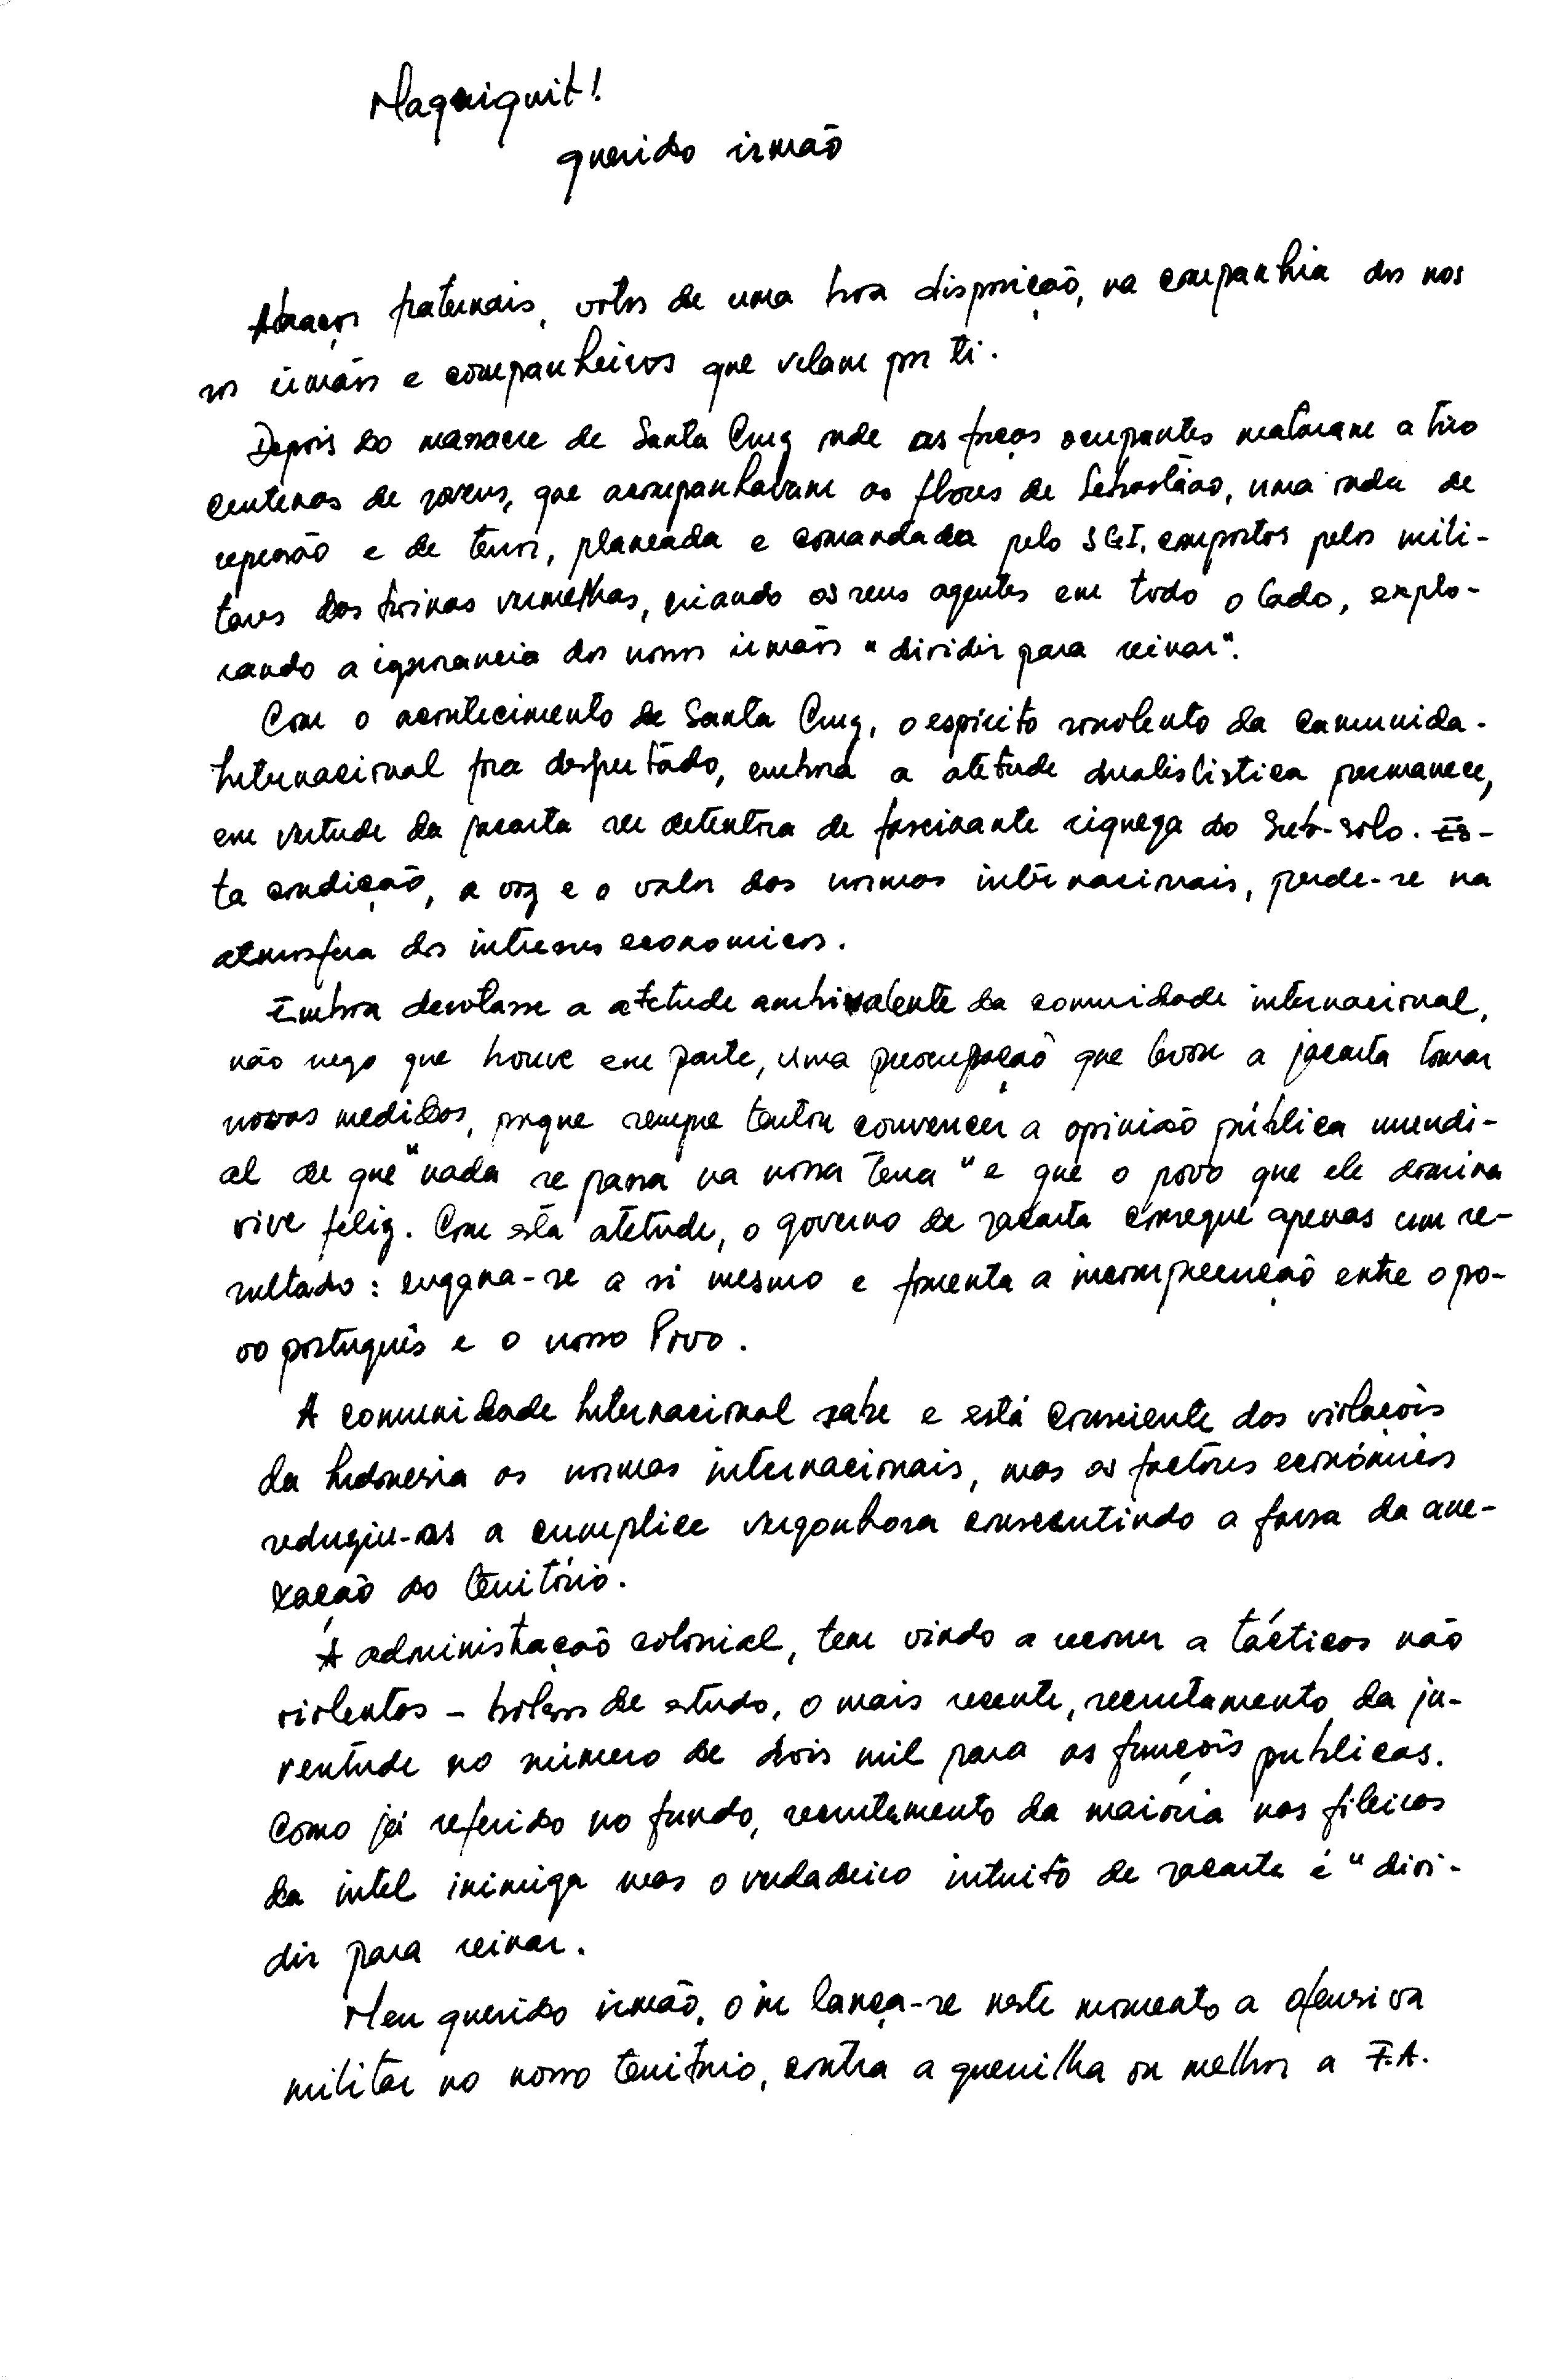 Maquiquit!
querido irmão
Abraços fraternais, votos de uma boa disposição, na companhia dos nos
sos irmãos e companheiros que velam por ti.
Depois do massacre de Santa Cruz onde as forças ocupantes mataram a tiro
centenas de jovens, que acompanhavam as flores de Sebastião, uma onda de
repressão e de terror, planeada e comandada pelo SGI, compostos pelos mili-
tares das boinas vermelhas, criando os seus agentes em todo o lado, explo-
rando a ignorancia dos nossos irmãos "dividir para reinar".
Com o acontecimento de Santa Cruz, o espírito sonolento da comunida-
Internacional fora despertado, embora a atetude dualistica permanece,
em vertude da jacarta ser detentora de fascinante riqueza do Sub-solo. Es-
ta condição, a voz e o valor das normas internacionais, perde-se na
atmosfera dos interesses economicos.
Embora denotasse a atetude ambivalente da comunidade internacional,
não nego que houve em parte, uma preocupação que levou a jacarta tomar
novas medidas, porque sempre tentou convencer a opinião pública mundi-
al de que "nada se passa na nossa terra" e que o povo que ele domina
vive feliz. Com esta atetude, o governo de jacarta consegue apenas um re-
sultado: engana-se a si mesmo e fomenta a incompreenção entre o po-
vo português e o nosso Povo.
A comunidade Internacional sabe e está consciente das violações
da Indonesia as normas internacionais, mas os factores económicos
reduziu-as a cumplice vergonhosa consentindo a farsa da ane-
xação do território.
A administração colonial, tem vindo a recorrer a tácticas não
violentas - bolsas de estudo, o mais recente, recrutamento da ju-
ventude no número de dois mil para as funções publicas.
Como já referido no fundo, recrutamento da maioria nas fileiras
da intel inimiga mas o verdadeiro intuito de jacarta é "divi-
dir para reinar.
Meu querido irmão, o in lança-se neste momento a ofensiva
militar no nosso território, contra a guerrilha ou melhor a F.A.